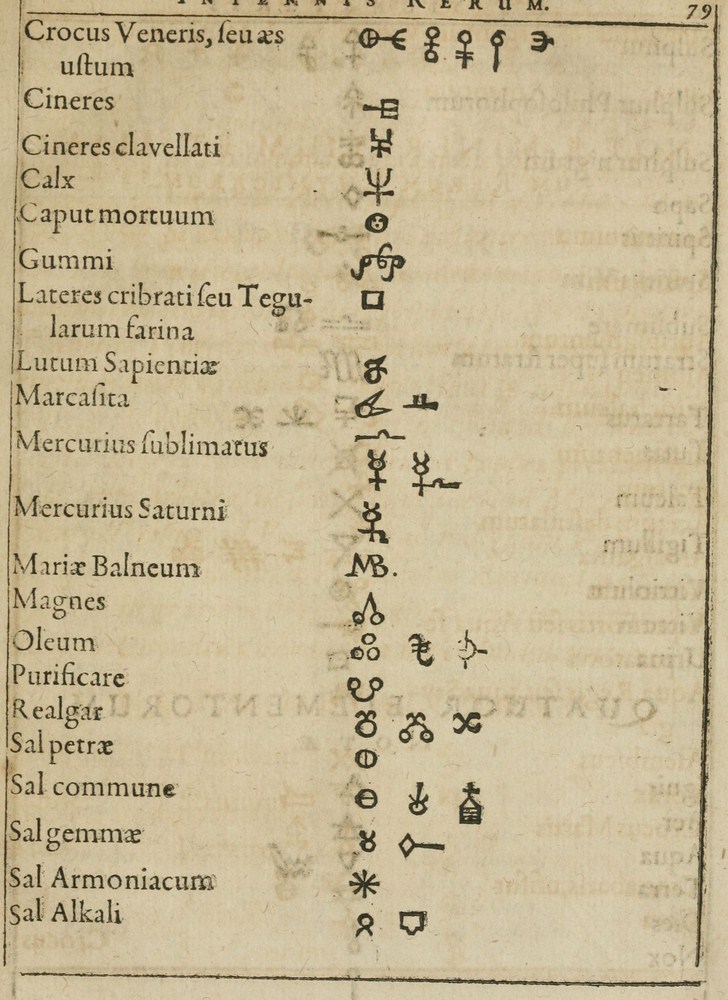 INTERNIS RERUM. 79
Crocus Veneris, ſeu æs
uſtum
Cineres
Cineres clavellati
Calx
Caput mortuum
Gummi
Lateres cribrati ſeu Tegu-
larum farina
Lutum Sapientiæ
Marcaſita
Mercurius ſublimatus
Mercurius Saturni
Mariæ Balneum MB.
Magnes
Oleum
Purificare
Realgar
Sal petræ
Sal commune
Sal gemmæ
Sal Armoniacum
Sal Alkali